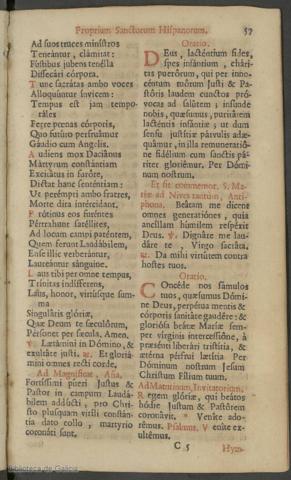 Proprium Sanctorum Hispanorum. 57
Ad suos truces ministros
Teneántur, clámitat:
Fústibus jubens tenélla
Dissecári córpora.
Tunc sacrátas ambo voces
Alloquúntur ínvicem:
Tempus est jam tempo-
ráles
Ferre poenas córporis,
Quo futúro perfruámur
Gáudio cum Angelis.
Audiens mox Daciánus
Mártyrum constántiam
Excitátus in furóre,
Dictat hanc senténtiam:
Ut perémpti ambo fratres,
Morte dira intércidant.
Prótinus eos furéntes
Pértrahunt satéllites,
Ad locum campi paréntem,
Quem ferunt Laudábilem,
Ense illic verberántur,
Laureántur sánguine.
Laus tibi per omne tempus,
Trínitas indífferens,
Laus, honor, virtúsque sum-
ma
Singuláris glóriæ,
Quæ Deum te sæculórum,
Pérsonet per sæcula. Amen.
℣. Lætámini in Dómino, &
exultáte justi. ℟. Et gloriá-
mini omnes recti corde.
Ad Magnificat, Aña.
Fortíssimi púeri Justus &
Pastor in campum Laudá-
bilem addúcti, pro Chri-
sto plusquam viríli constán-
tia dato collo, martyrio
coronáti sunt.
Oratio.
Deus, lacténtium fides,
spes infántium, chári-
tas puerórum, qui per inno-
céntum tuórum Justi & Pa-
stóris laudem cunctos pró-
vocas ad salútem; infúnde
nobis, quæsumus, puritátem
lacténtis infántiæ; ut dum
sensu justítiæ párvulis adæ-
quámur, in illa remuneratió-
ne fidélium cum sanctis pá-
riter gloriémur. Per Dómi-
num nostrum.
Et fit commemor. S. Ma-
riæ ad Nives tantùm, Anti-
phona. Beátam me dicent
omnes generatiónes, quia
ancíllam húmilem respéxit
Deus. ℣. Dignáre me lau-
dáre te, Virgo sacráta.
℟. Da mihi virtútem contra
hostes tuos.
Oratio.
Concéde nos fámulos
tuos, quæsumus Dómi-
ne Deus, perpétua mentis &
córporis sanitáte gaudére: &
gloriósa beátæ Maríæ sem-
per vírginis intercessióne, à
præsénti liberári tristítia, &
ætérna pérfrui lætítia Per
Dóminum nostrum Jesum
Christum Fílium tuum.
Ad Matutinum, Invitatorium.
Regem glóriæ, qui beátos
hódie Justum & Pastórem
coronávit. * Veníte ado-
rémus. Psalmus. Veníte ex-
ultémus.
C 5 Hym-
Biblioteca de Galicia